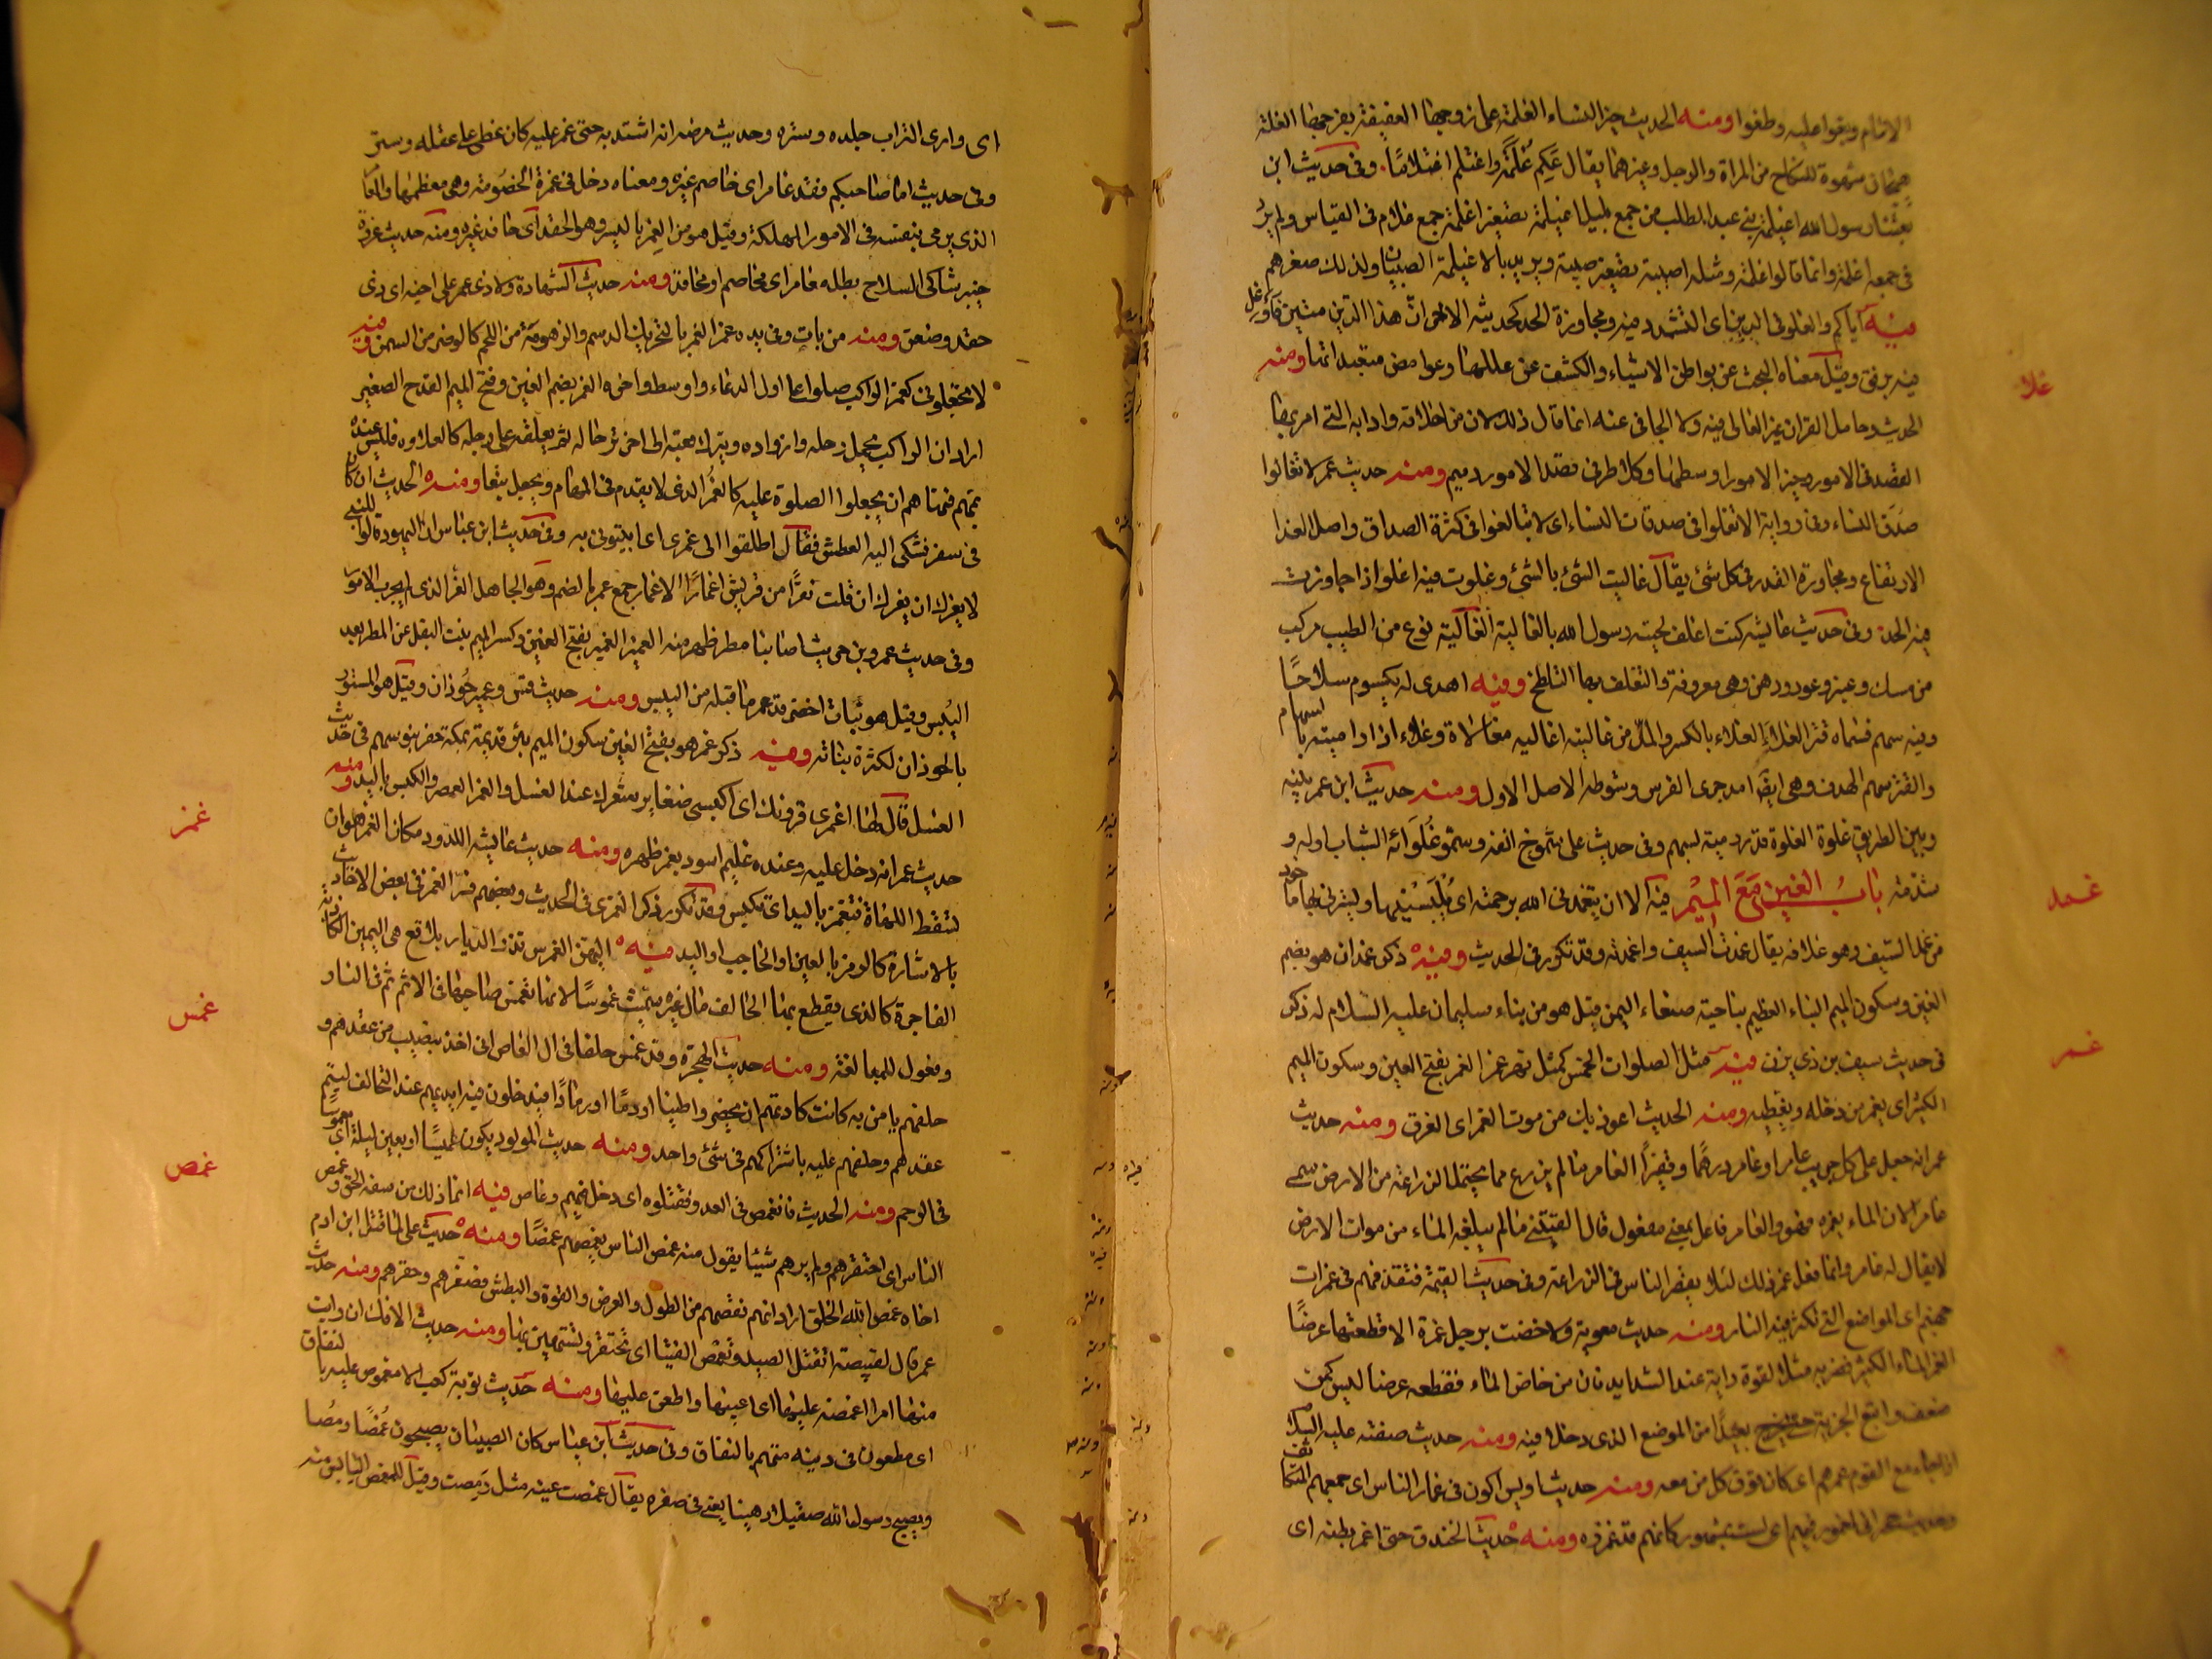 الامام وبغوا عليه وطغوا ومنه الحديث خير النساء الغلمة على زوجها العفيفة بفرجها الغلمة
هيجان شهوة للنكاح من المراة والرجل وغيرهما يقال غلم غلمة واغتلم اغتلاما وفى حديث ابن
بعثنا رسول الله اغيلمة بنى عبد المطلب من جمع بليل اغيلمة تصغير اغلمة جمع غلام فى القياس ولم يرد
فى جمعه اغلمة وانما قالوا غلمة ومثله اصيبية تصغير صبية ويريد بالاغيلمة الصبيان ولذلك صغرهم
غلا
فيه اياكم والغلو فى الدين اى التشدد فيه ومجاوزة الحد كحديثه الاخر ان هذا الدين متين فاوغل
فيه برفق وقيل معناه البحث عن بواطن الاشياء والكشف عن عللها وغوامض متعبداتها ومنه
الحديث وحامل القران غير الغالى فيه ولا الجافى عنه انما قال ذلك لان من اخلاقه وادابه التى امر بها
القصد فى الامور وخير الامور اوسطها وكلا طرفى قصد الامور ذميم ومنه حديث عمر لا تغالوا
صدق النساء وفى رواية لا تغلوا فى صدقات النساء اى لا تبالغوا فى كثرة الصداق واصل الغلا
الارتفاع ومجاوزة القدر فى كل شئ يقال غاليت الشئ بالشئ وغلوت فيه اغلو اذا جاوزت
فيه الحد وفى حديث عايشه كنت اغلف لحية رسول الله بالغالية الغالية نوع من الطيب مركب
من مسك وعنبر وعود ودهن وهى معروفة والتغلف بها التلطخ وفيه اهدى له يكسوم سلاحا
وفيه سهم فسماه قتر الغلاء الغلاء بالكسر والمد من غاليته اغاليه مغالاة وغلاء اذا راميته بالسهام
والقتر سهم الهدف وهى ايضا امد جرى الفرس وشوطه الاصل الاول ومنه حديث ابن عمر بينه
وبين الطريق غلوة الغلوة قدر رمية بسهم وفى حديث على شموخ انفه وسمو غلوائه الشباب اوله و
غمد
شدته باب الغين مع الميم فيه الا ان يتغمدنى الله برحمته اى يلبسنيها ويسترنى بها ماخوذ
من غمد السيف وهو غلافه يقال غمدت السيف واغمدته وقد تكرر فى الحديث وفيه ذكر غمدان هو بضم
الغين وسكون الميم البناء العظيم بناحية صنعاء اليمن قيل هو من بناء سليمان عليه السلام له ذكر
غمر
فى حديث سيف بن ذى يزن فيه مثل الصلوات الخمس كمثل نهر غمر الغمر بفتح الغين وسكون الميم
الكثير اى يغمر من دخله ويغطيه ومنه الحديث اعوذ بك من موت الغمر اى الغرق ومنه حديث
عمر انه جعل على كل جريب عامر او غامر درهما وقفيزا الغامر ما لم يزرع مما يحتمل الزراعة من الارض سمى
غامرا لان الماء يغمره فهو والغامر فاعل بمعنى مفعول قال القتيبى ما لم يبلغه الماء من موات الارض
لا يقال له غامر وانما فعل عمر ذلك لئلا يقصر الناس فى الزراعة وفى حديث القيمة فتقذفهم فى غمرات
جهنم اى المواضع التى تكثر فيه النار ومنه حديث معوية ولا خضت برجل غمرة الا قطعتها عرضا
الغمر الماء الكثير فضربه مثلا لقوة رايه عند الشدايد فان من خاض الماء فقطعه عرضا ليس كمن
ضعف واتبع الجرية حتى يخرج بعيدا من الموضع الذى دخل فيه ومنه حديث صفته عليه السلام
اذا جاء مع القوم غمرهم اى كان فوق كل من معه ومنه حديث اويس اكون فى غمار الناس اى جمعهم المتكاثف
وحديث حجر انى لمغمور فيهم اى لست بمشهور كانهم قد غمروه ومنه حديث الخندق حتى اغمر بطنه اى
اى وارى التراب جلده وستره وحديث مرضه انه اشتد به حتى غمر عليه كان غطى على عقله وستر
وفى حديث اما صاحبكم فقد غامر اى خاصم غيره ومعناه دخل فى غمرة الخصومة وهى معظمها والمغامر
الذى يرمى بنفسه فى الامور المهلكة وقيل هو من الغمر بالكسر وهو الحقد اى حاقد غيره ومنه حديث غزوة
خيبر شاكى السلاح بطل مغامر اى مخاصم او محاقد ومنه حديث الشهادة ولا ذى غمر على اخيه اى ذى
حقد وضغن ومنه من بات وفى يده غمر الغمر بالتحريك الدسم والزهومة من اللحم كالوضر من السمن ومنه
لا تجعلونى كغمر الراكب صلوا على اول الدعاء واوسطه واخره الغمر بضم الغين وفتح الميم القدح الصغير
اراد ان الراكب يحمل رحله وازواده ويترك قعبه الى اخر ترحاله ثم يعلقه على رحله كالعلاوة فليس عنده
بمهم فنهاهم ان يجعلوا الصلوة عليه كالغمر الذى لا يقدم فى المهام ويجعل تبعا ومنه الحديث انه كان
فى سفر فشكى اليه العطش فقال اطلقوا الى غمرى اى ايتونى به وفى حديث ابن عباس ان اليهود قالوا للنبى
لا يغرك ان قتلت نفرا من قريش اغمارا الاغمار جمع غمر بالضم وهو الجاهل الغر الذى لم يجرب الامور
وفى حديث عمرو بن حريث اصابنا مطر ظهر منه الغمير الغمير بفتح الغين وكسر الميم نبت البقل عن المطر بعد
اليبس وقيل هو نبات اخضر قد غمر ما قبله من اليبس ومنه حديث قس وغمير حوذان وقيل هو المستور
بالحوذان لكثرة نباته ومنه ذكر غمر هو بفتح الغين سكون الميم بئر قديمة بمكة حفرها بنو سهم فى حديث
غمز
الغسل قال لها اغمزى قرونك اى اكبسى ضفاير شعرك عند الغسل والغمز العصر والكبس باليد ومنه
حديث عمر انه دخل عليه وعنده غليم اسود يغمز ظهره ومنه حديث عايشه اللدود مكان الغمز هو ان
تسقط اللهاة فتغمز باليد اى تكبس وقد تكرر ذكر الغمز فى الحديث وبعضهم فسر الغمز فى بعض الاحاديث
غمس
بالاشارة كالرمز بالعين او الحاجب او اليد فيه اليمين الغموس تذر الديار بلاقع هى اليمين الكاذبة
الفاجرة كالذى يقطع بها الحالف مال غيره سميت غموسا لانها تغمس صاحبها فى الاثم ثم فى النار
وفعول للمبالغة ومنه حديث الهجرة وقد غمس حلفا فى ال العاص اى اخذ بنصيب من عقدهم و
حلفهم يامن به كانت عادتهم ان يحضروا طيبا او دما او رمادا فيدخلون فيه ايديهم عند التحالف ليتم
عقدهم وحلفهم عليه باشتراكهم فى شئ واحد ومنه حديث المولود يكون غميسا اربعين ليلة اى مغموسا
غمص
فى الرحم ومنه الحديث فانغمس فى العدو فقتلوه اى دخل فيهم وغاص فيه انما ذلك من سفه الحق وغمص
الناس اى احتقرهم ولم يرهم شيئا يقول منه غمص الناس يغمصهم غمصا ومنه حديث على لما قتل ابن ادم
اخاه غمص الله الخلق اراد انه نقصهم من الطول والعرض والقوة والبطش فصغرهم وحقرهم ومنه حديث
عمر قال لقبيصة اتقتل الصيد وتغمص الفتيا اى تحتقر وتستهين بها ومنه حديث الافك ان رايت
منها امرا اغمصه عليها اى اعيبها واطعن عليها ومنه حديث توبة كعب الا مغموص عليه بالنفاق
اى مطعون فى دينه متهم بالنفاق وفى حديث ابن عباس كان الصبيان يصبحون غمصا رمصا
ويصبح رسول الله صقيلا دهينا يعنى فى صغره يقال غمصت عينه مثل رمصت وقيل الغمص اليابس منه